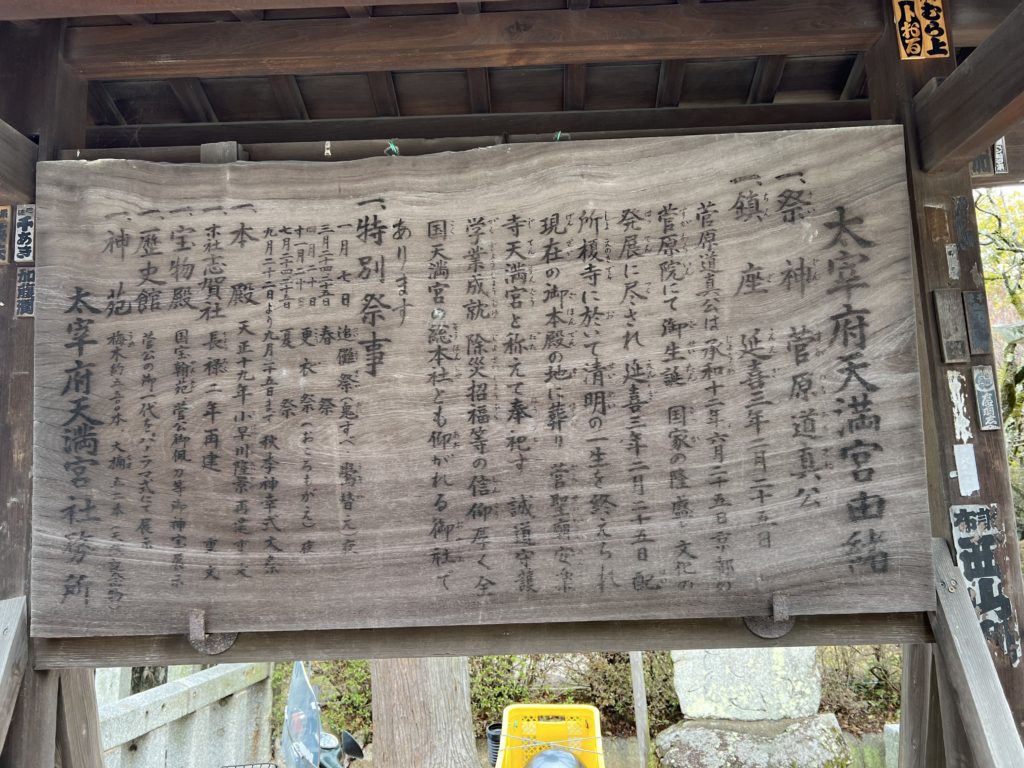 太宰府天満宮由緒
一、祭神 菅原道真公
一、鎮座 延喜三年二月二十五日
菅原道真公は承和十二年六月二十五日京都の
菅原院にて御生誕 国家の隆盛と文化の
発展に尽され 延喜三年二月二十五日 配
所榎寺に於いて清明の一生を終えられ
現在の御本殿の地に葬り 菅聖廟安楽
寺天満宮と称えて奉祀す 誠道守護
学業成就 除災招福等の信仰厚く全
国天満宮の総本社とも仰がれる御社で
あります
一、特別祭事
一月 七日 追儺祭(鬼すべ 鷽替え)夜
三月二十四・二十五日 春祭
四月二十日 更衣祭(おころもがえ)
十一月二十日
七月二十四・二十五日 夏祭
九月二十二日より九月二十五日まで 秋季神幸式大祭
一、本殿 天正十九年 小早川隆景再建 重文
一、末社志賀社 長禄二年再建 重文
一、宝物殿 国宝翰苑 菅公御佩刀等御神宝展示
一、歴史館 菅公の御一代をハカタ人形にて展示
一、神苑 梅木約六千本 大樟五十一本(天然記念物)
太宰府天満宮社務所
むら上
千あき
加藤潤